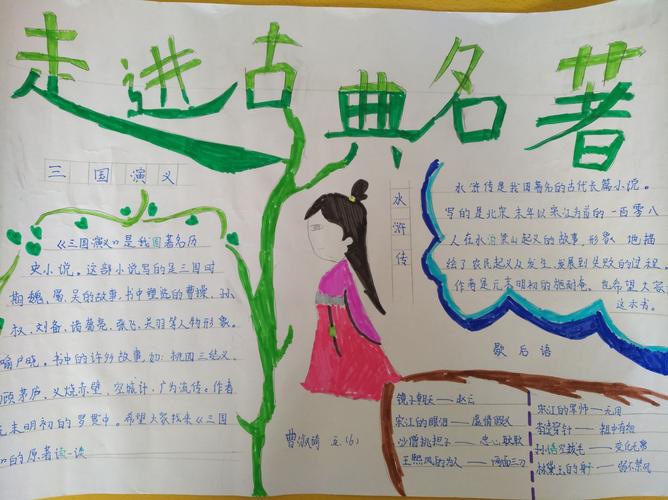 走进古典名著
三国演义
《三国演义》是我国著名历
史小说。这部小说写的是三国时
期魏、蜀、吴的故事,书中塑造的曹操、孙
权、刘备、诸葛亮、张飞、关羽等人物形象。
喻户晓。书中的许多故事,如:桃园三结义、
顾茅庐、火烧赤壁、空城计,广为流传。作者
元末明初的罗贯中。希望大家找来《三国
的原著读一读
水浒传
水浒传是我国著名的古代长篇小说。
写的是北宋末年以宋江为首的一百零八
人在水泊梁山起义的故事,形象地描
绘了农民起义从发生、发展到失败的过程。
作者是元末明初的施耐庵。也希望大家
这本书。
歇后语
镜子朝天——赵云
宋江的眼泪——虚情假义
沙僧挑担子——忠心耿耿
王熙凤的为人——两面三刀
宋江的军师——无用
李逵穿针——粗中有细
孙悟空拔毛——变化无常
林黛玉的身子——弱不禁风
五(6)